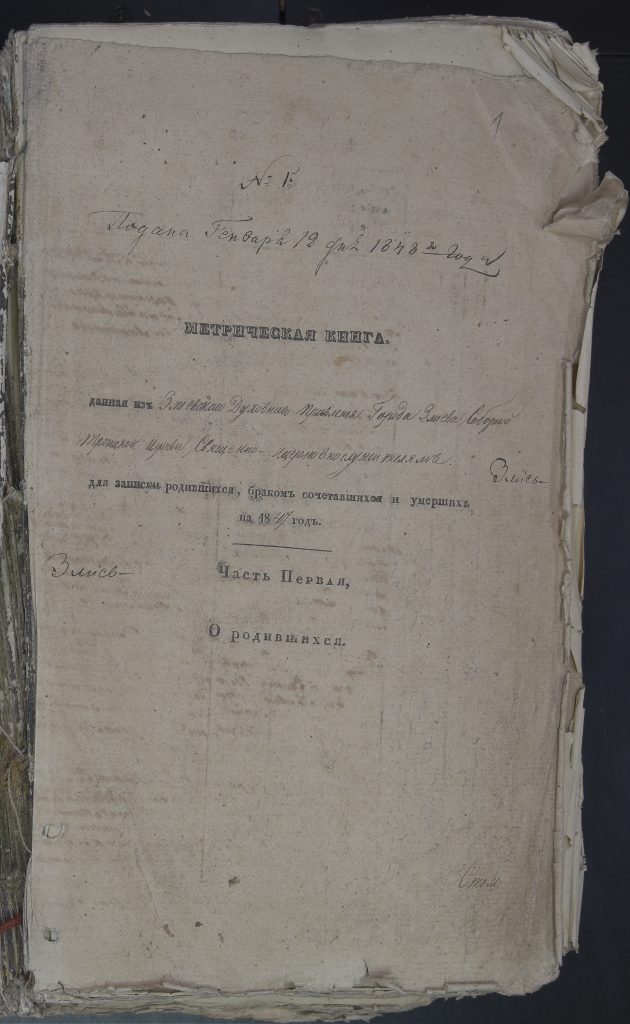 1
№ 1й
Подана Генваря 12 дня 1848го года
МЕТРИЧЕСКАЯ КНИГА.
данная изъ Зміевскаго Духовнаго Правленія Города Зміева Соборной
Троицкой Церкви Священно-церковнослужителямъ.
Зміев-
для записки родившихся, бракомъ сочетавшихся и умершихъ
на 1847 годъ.
Зміев-
Часть Первая,
О родившихся.